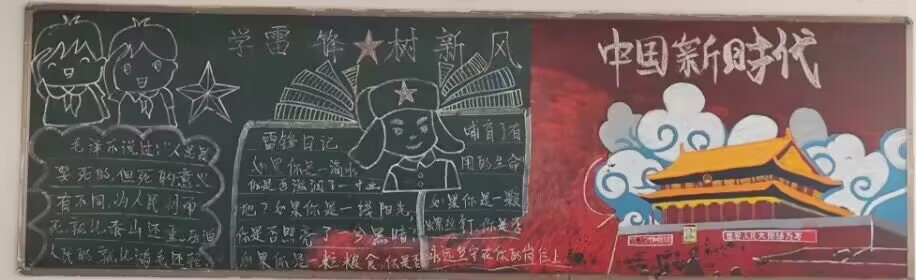 学雷锋★树新风
中国新时代
毛泽东说过:"人总是
要死的,但死的意义
有不同,为人民利而
死,就比泰山还重;压迫
人民的,就比鸿毛还轻
雷锋日记
如果你是一滴水
你是否滋润了一寸土
地?如果你是一线阳光,
你是否照亮了一分黑暗
如果你是一粒粮食,你是否
哺育了有
用的生命
如果你是一颗
螺丝钉,你是否
永远坚守在你的岗位上
世界人民大团结万岁